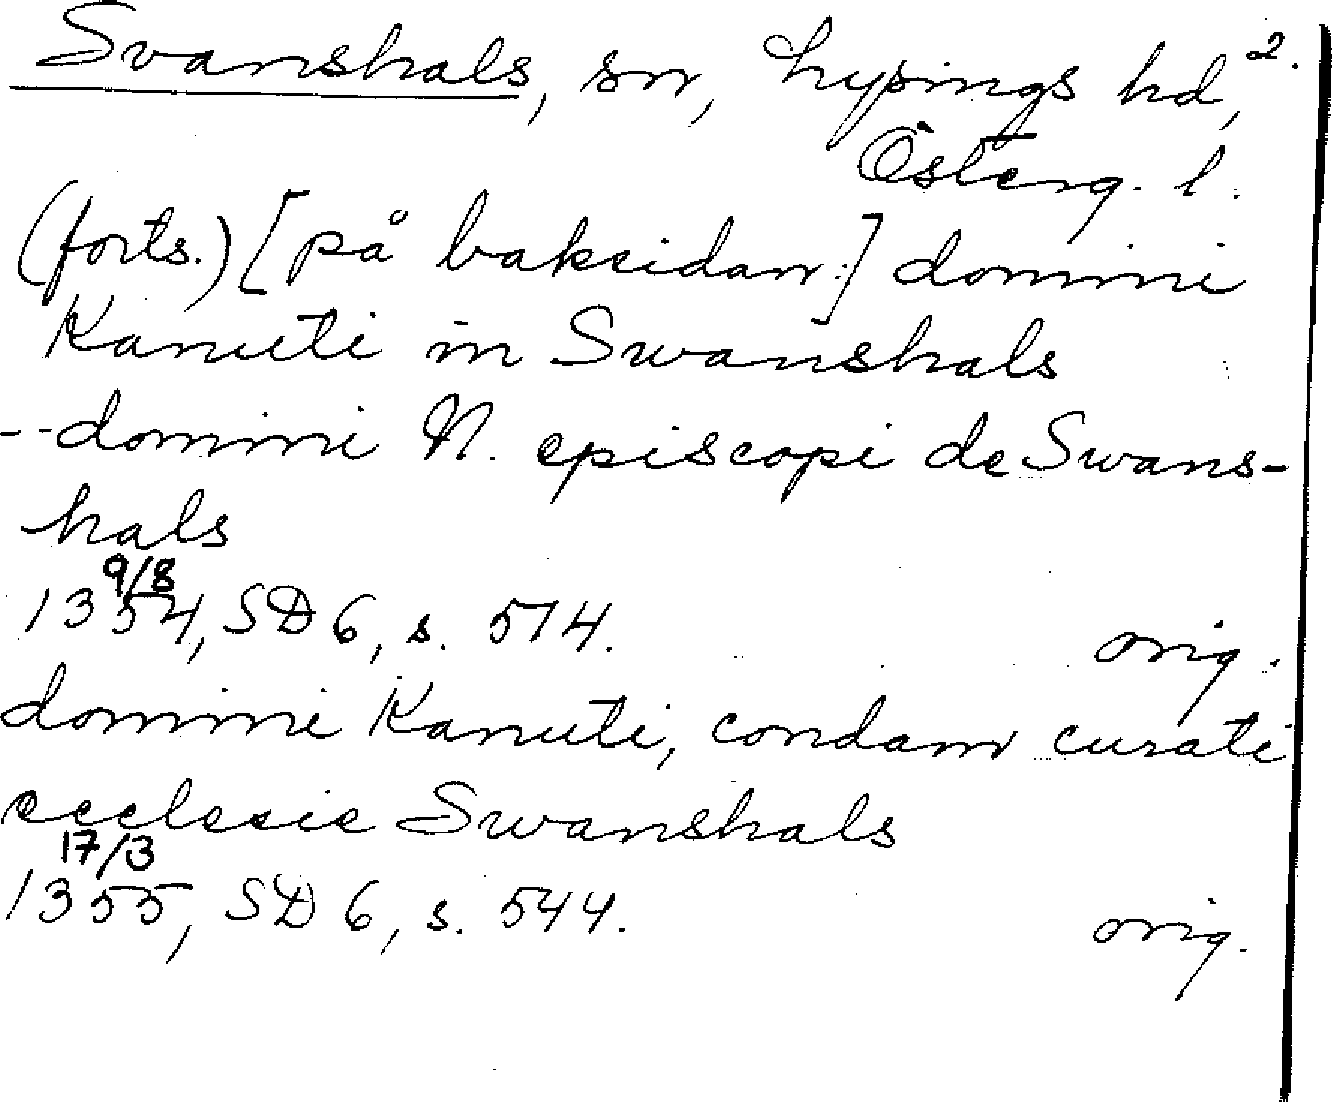 Svanshals, sn, Lysings hd, 2.
Österg. l.
(forts.) [på baksidan:] domini
Kanuti in Swanshals
-- domini N. episcopi de Swans-
hals
9/8
1354, SD 6, s. 514. orig.
domini Kanuti, condam curati
ecclesie Swanshals
17/3
1355, SD 6, s. 544. orig.